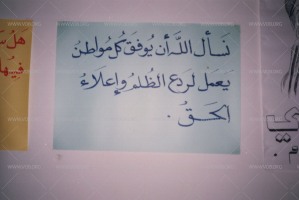 نسأل الله أن يوفق كل مواطن
يعمل لردع الظلم وإعلاء
الحق .
هل
فيها